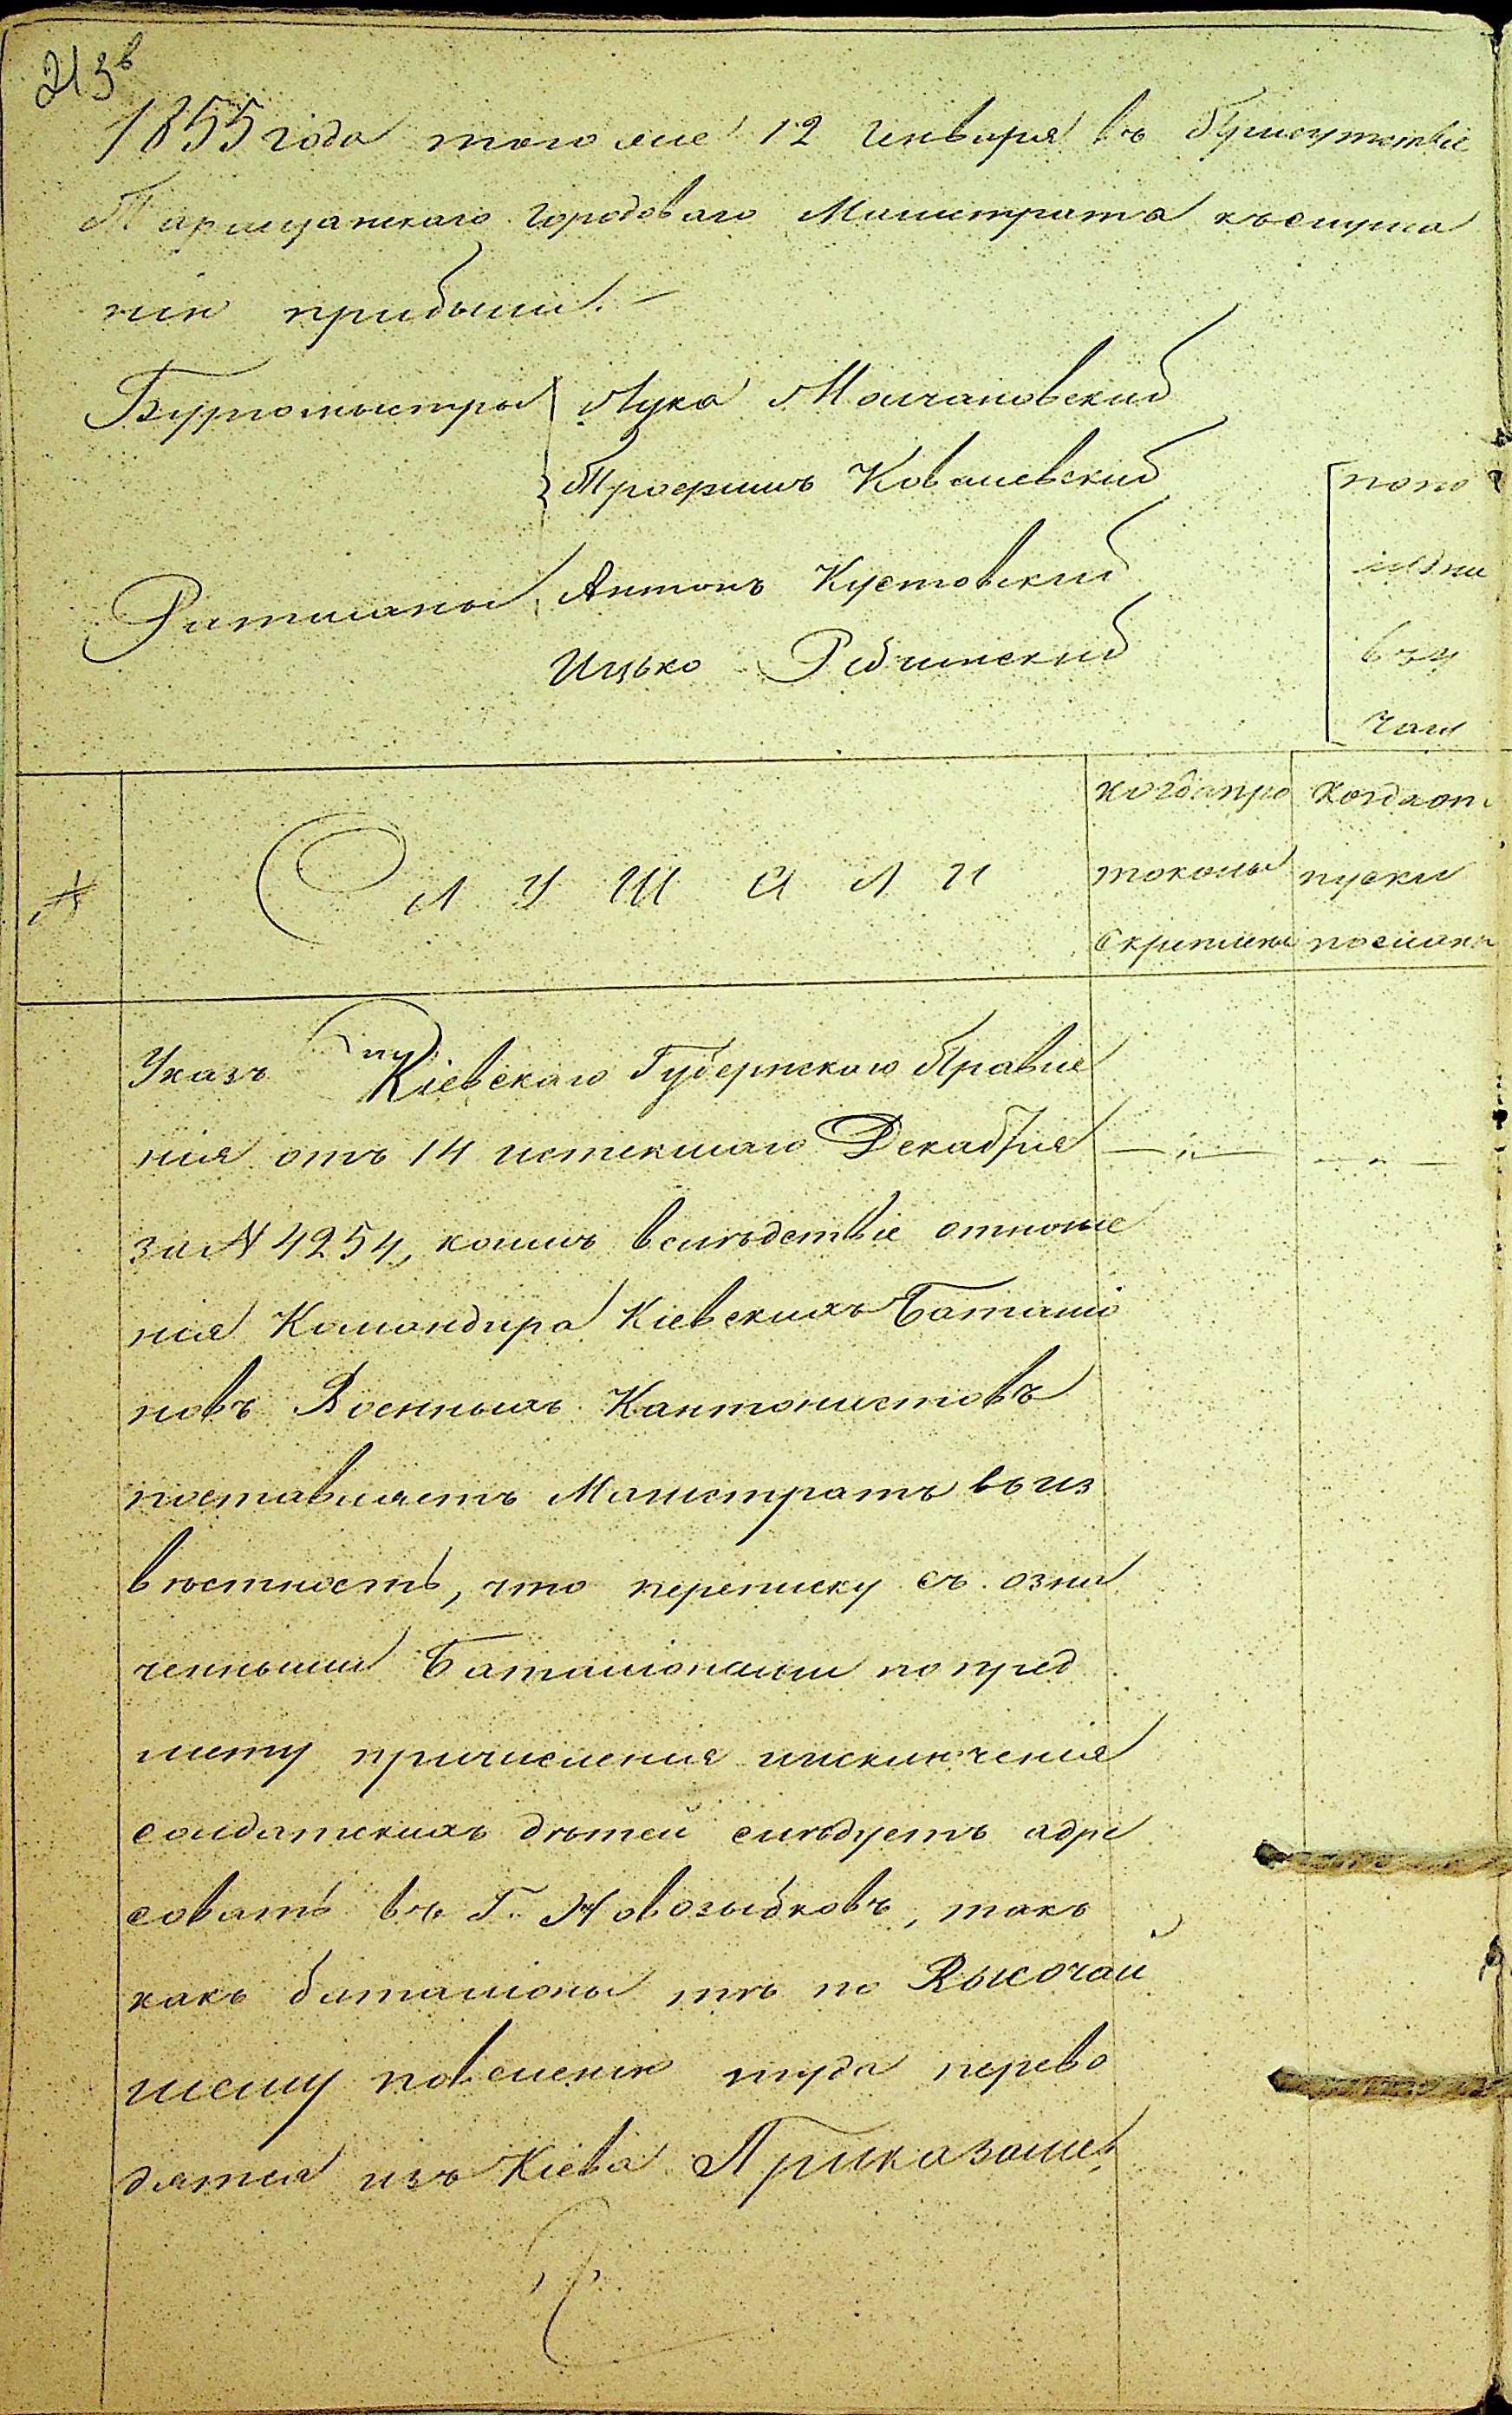 213в
1855 года того же 12 Генваря въ Присутствіе
Таращанскаго Городоваго Магистрата къслуша
нію прибыли.
Бургомыстры Лука Молчановскій
Трофимъ Ковалевскій
Ратманы Антонъ Кустовскій
Ицько Рабчинскій
попо
лудни
въ
часа
№
СЛУШАЛИ
когдапро
токолы
скриплены
Когдаот
пуски
посланы
Указъ Кіевскаго Губернскаго Правле
нія отъ 14 истекшаго Декабря
за № 4254, коимъ вслѣдствіе отноше
нія Командира Кіевскихъ Баталіо
новъ Военныхъ Кантонистовъ
поставляетъ Магистратъ въ из
вѣстность, что переписку съ озна
ченными Баталіонами попред
мету причисленія иисключенія
солдатскихъ дѣтей слѣдуетъ адре
совать въ Г. Новозыбковъ, такъ
какъ баталіоны тѣ по Высочай
шему повеленію туда перево
дятся изъ Кіева Приказали